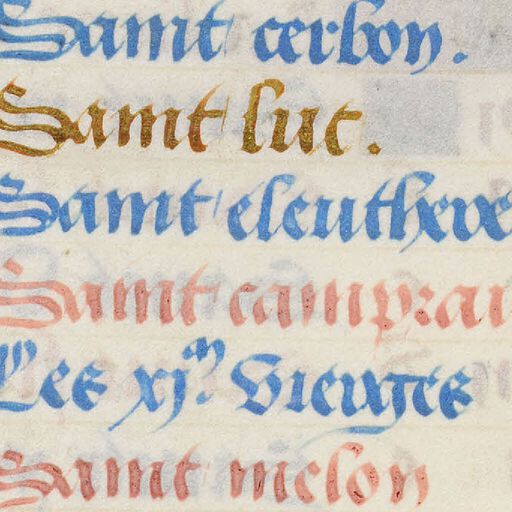 Saint cerbon.
Saint luc.
Saint eleuthere
Saint caprai
Les xjᵐ. vierges
Saint melon